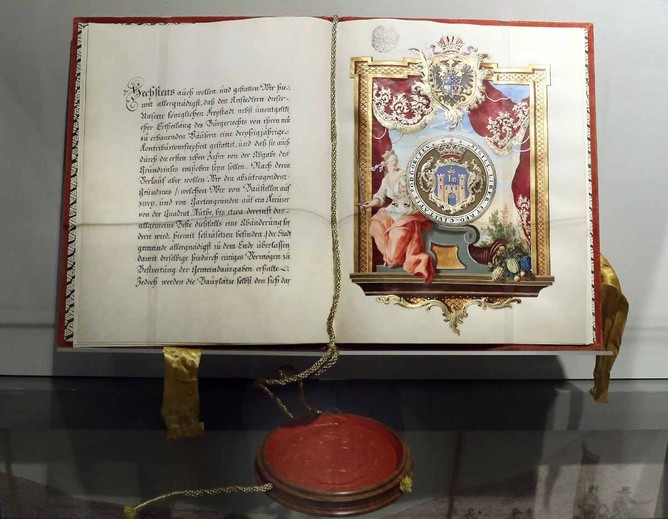 Sechstens auch wollen, und gestatten Wir hie-
mit allergnädigst, daß den Ansiedlern dieser
Unserer königlichen Freystadt nebst unentgelt-
cher Ertheilung des Bürgerrechts von ihren neu
zu erbauenden Häusern eine dreyßigjährige
Kontributionsfreyheit gestattet, und daß sie auch
durch die ersten zehn Jahre von der Abgabe des
Grundzinses enthoben seyn sollen. Nach deren
Verlauf aber wollen Wir den abzutragenden
Grundzins / welchen Wir von Baustellen auf
zwey, und von Gartengründen auf ein Kreuzer
von der Quadrat Klafter, bis etwa dereinst das
allgemeine Beste diesfalls eine Abänderung for-
dern wird, hiemit festzusetzen befinden / der Stadt
gemeinde allergnädigst zu dem Ende überlassen,
damit dieselbe hiedurch einiges Vermögen zu
Bestreitung der Gemeindausgaben erhalte.
Jedoch werden die Bauplätze selbst den sich dar